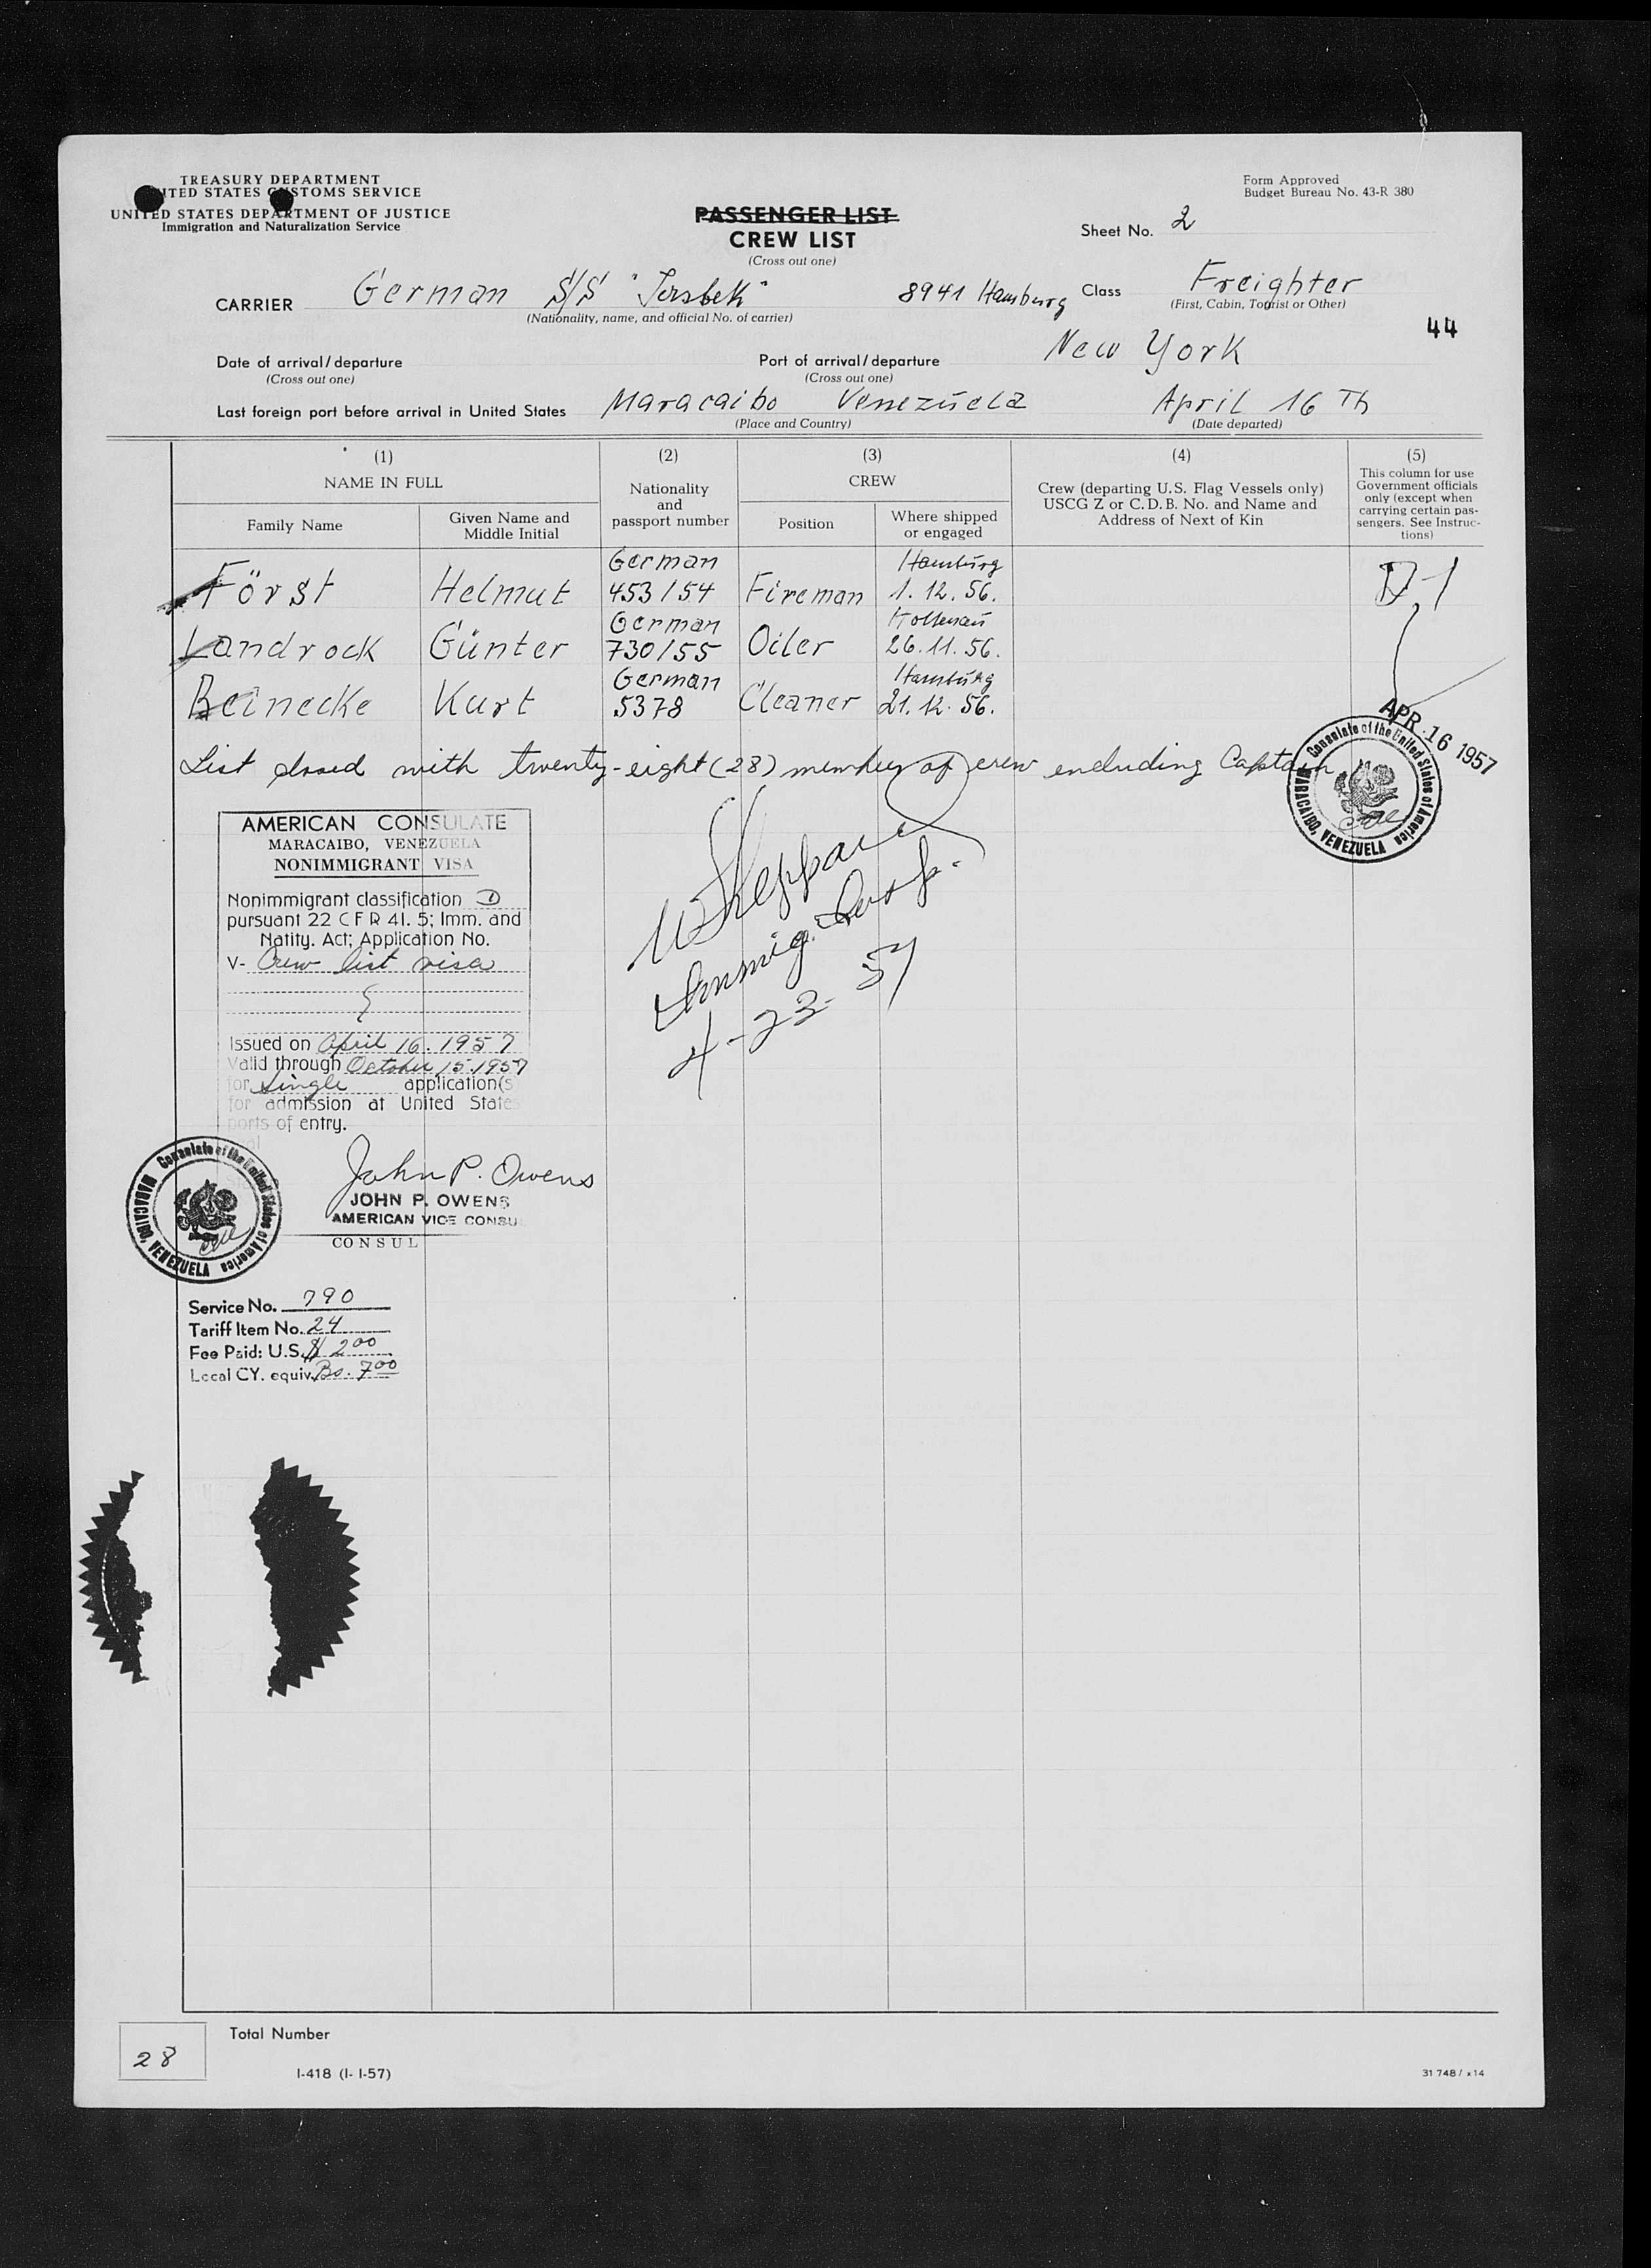 TREASURY DEPARTMENT
UNITED STATES CUSTOMS SERVICE
UNITED STATES DEPARTMENT OF JUSTICE
Immigration and Naturalization Service
Form Approved
Budget Bureau No. 43-R 380
PASSENGER LIST
CREW LIST
(Cross out one)
Sheet No. 2
CARRIER German S/S "Jersbek" 8941 Hamburg Class Freighter
(Nationality, name, and official No. of carrier) (First, Cabin, Tourist or Other)
44
Date of arrival/departure Port of arrival/departure New York
(Cross out one) (Cross out one)
Last foreign port before arrival in United States Maracaibo Venezuela April 16 Th
(Place and Country) (Date departed)
(1) (2) (3) (4) (5)
NAME IN FULL
Nationality and passport number
CREW
Crew (departing U.S. Flag Vessels only)
USCG Z or C.D.B. No. and Name and
Address of Next of Kin
This column for use
Government officials
only (except when
carrying certain pas-
sengers. See Instruc-
tions)
Family Name Given Name and Middle Initial Position Where shipped or engaged
German Hamburg
Först Helmut 453/54 Fireman 1. 12. 56. D-1
German Holtenau
Landrock Günter 730/55 Oiler 26. 11. 56.
German Hamburg
Beinecke Kurt 5378 Cleaner 21. 12. 56.
APR 16 1957
List closed with twenty-eight (28) members of crew including Captain
Consulate of the United States of America
MARACAIBO, VENEZUELA
AMERICAN CONSULATE
MARACAIBO, VENEZUELA
NONIMMIGRANT VISA
Nonimmigrant classification D
pursuant 22 CFR 41. 5; Imm. and
Natity. Act; Application No.
V- Crew list visa
Issued on April 16. 1957
Valid through October 15. 1957
for single application(s
for admission at United States
ports of entry.
Sheppard
Immig. Insp.
4-23-57
Consulate of the United States of America
MARACAIBO, VENEZUELA
John P. Owens
JOHN P. OWENS
AMERICAN VICE CONSU
CONSUL
Service No. 790
Tariff Item No. 24
Fee Paid: U.S. $ 2 00
Local CY. equiv. Bs. 7 00
28
Total Number
I-418 (I- I-57)
31 748 / x 14